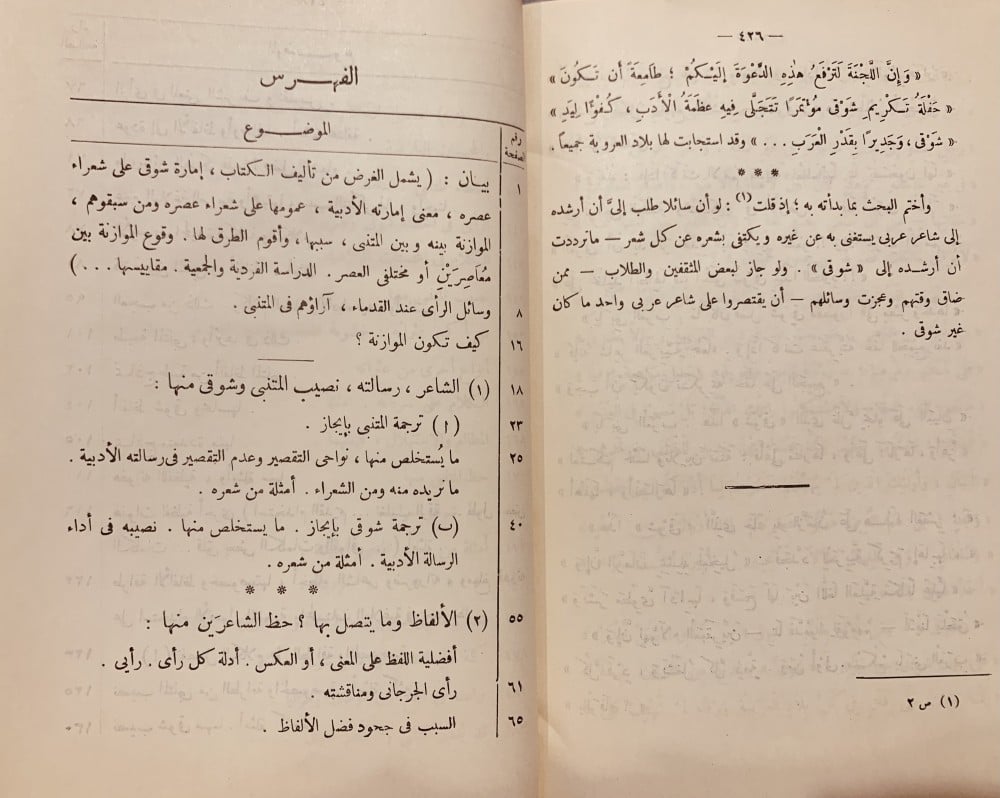 — ٤٢٦ —
« وَإِنَّ اللَّجْنَةَ لَتَرْفَعُ هٰذِهِ الدَّعْوَةَ إِلَيْكُمْ ؛ طَامِعَةً أَن تَكُونَ »
« حَفْلَةُ تَكْرِيمِ شَوْقِى مُؤْتَمَرًا تَتَجَلَّى فِيهِ عَظَمَةُ الْأَدَبِ ، كُفْؤًا لِيَدِ »
« شَوْقِى ، وَجَدِيرًا بِقَدْرِ الْعَرَبِ ... » وقد استجابت لها بلاد العروبة جميعاً .
* * *
وأختم البحث بما بدأته به ؛ إذ قلت (١) : لو أن سائلا طلب إلىَّ أن أرشده
إلى شاعر عربى يستغنى به عن غيره ويكتفى بشعره عن كل شعر — ما ترددت
أن أرشده إلى « شوقى » . ولو جاز لبعض المثقفين والطلاب — ممن
ضاق وقتهم وعجزت وسائلهم — أن يقتصروا على شاعر عربى واحد ما كان
غير شوقى .
(١) ص ٢
الفهرس
رقم الصفحة الموضوع
١ بيان : ( يشمل الغرض من تأليف الكتاب ، إمارة شوقى على شعراء
عصره ، معنى إمارته الأدبية ، عمومها على شعراء عصره ومن سبقوهم ،
الموازنة بينه وبين المتنبى ، سببها ، وأقوم الطرق لها . وقوع الموازنة بين
مُعَاصِرَيْنِ أو مختلفى العصر . الدراسة الفردية والجمعية . مقاييسها ... )
٨ وسائل الرأى عند القدماء ، آراؤهم فى المتنبى .
١٦ كيف تكون الموازنة ؟
١٨ (١) الشاعر ، رسالته ، نصيب المتنبى وشوقى منها :
٢٣ (ا) ترجمة المتنبى بإيجاز .
٢٥ ما يُستخلص منها ، نواحى التقصير وعدم التقصير فى رسالته الأدبية .
ما نريده منه ومن الشعراء . أمثلة من شعره .
٤٠ (ب) ترجمة شوقى بإيجاز . ما يستخلص منها . نصيبه فى أداء
الرسالة الأدبية . أمثلة من شعره .
* * *
٥٥ (٢) الألفاظ وما يتصل بها ؟ حظ الشاعرَين منها :
أفضلية اللفظ على المعنى ، أو العكس . أدلة كل رأى . رأيى .
٦١ رأى الجرجانى ومناقشته .
٦٥ السبب فى جحود فضل الألفاظ .